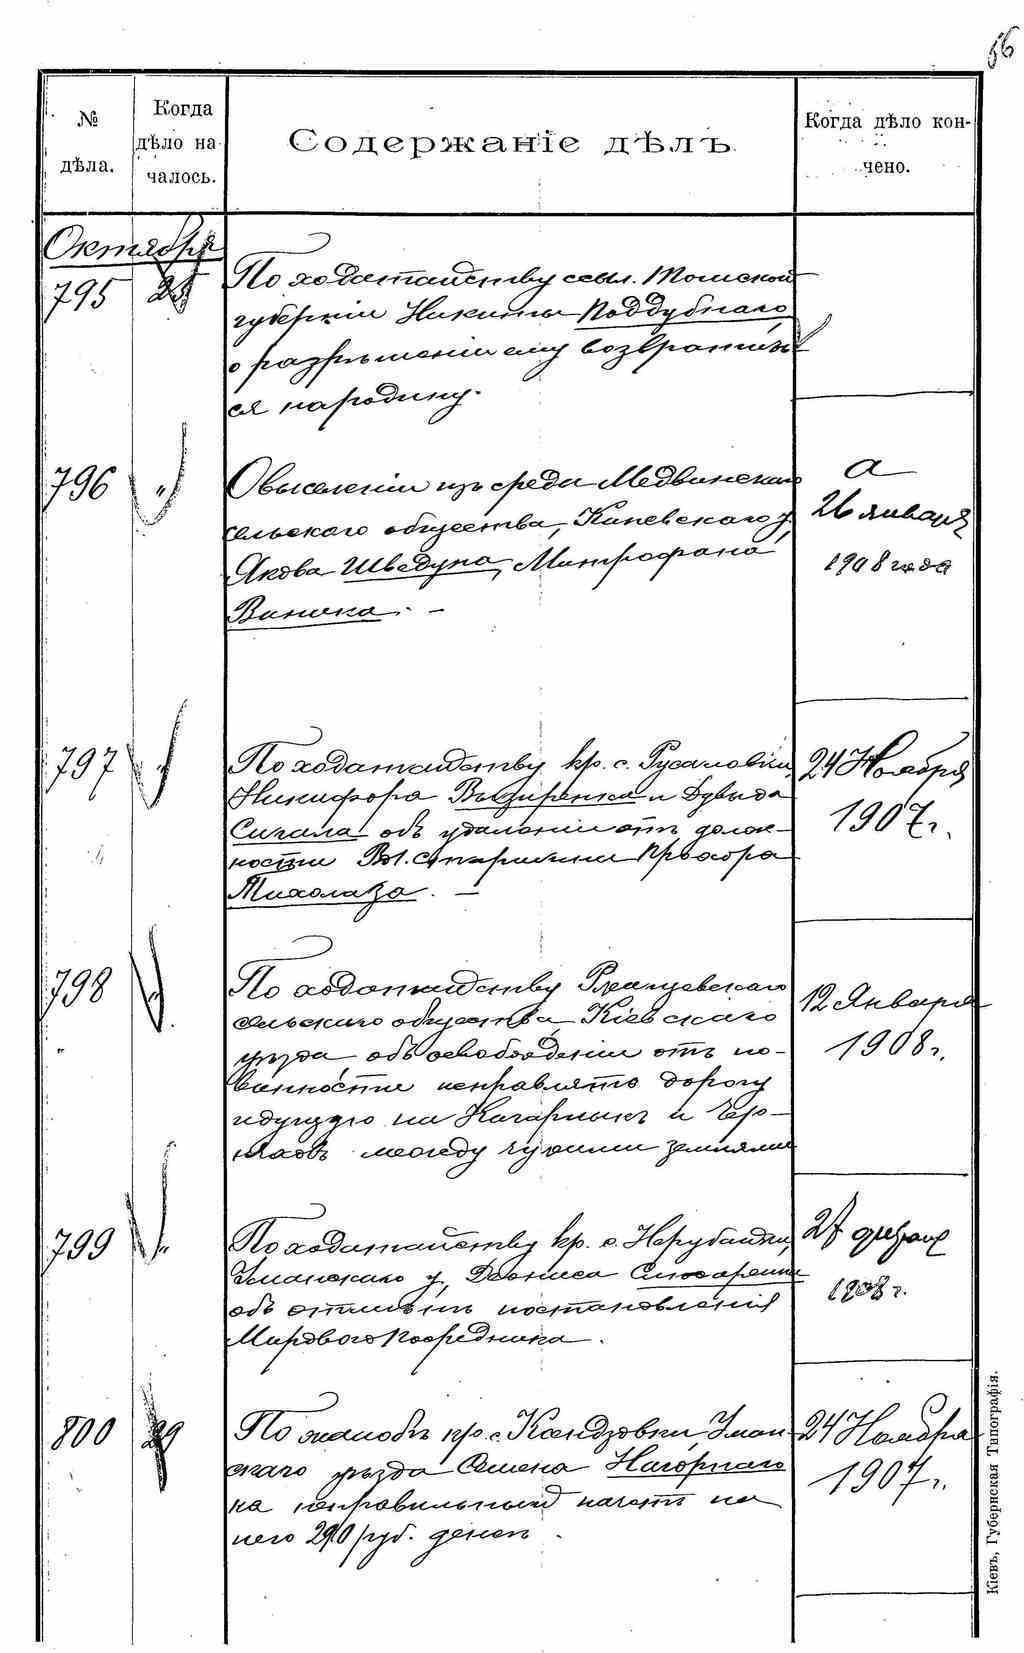 56
№
дѣла.
Когда
дѣло на-
чалось.
Содержаніе дѣлъ.
Когда дѣло кон-
чено.
Октября
795 25
По ходатайству ссыл. Томской
губерніи Никиты Поддубнаго
о разрѣшеніи ему возвратить
ся на родину.
796 "
О выселеніи изъ среды Медвинскаго
сельскаго общества, Каневскаго у.
Якова Шведуна, Митрофана
Винника. —
а
26 января
1908 года
797 "
По ходатайству кр. с. Русаловки,
Никифора и Давида
Сигала объ удаленіи отъ долж-
ности Вол. старшины Прохора
—
24 Ноября
1907 г.
798 "
По ходатайству Ржищевскаго
сельскаго общества, Кіевскаго
уѣзда объ освобожденіи отъ по-
винности исправлять дорогу
идущую на Кагарлыкъ и Чер-
между чужими землями
12 Января
1908 г.
799 "
По ходатайству кр. с. Нерубайки,
Уманскаго у. Дениса Слюсаренка
объ отмѣнѣ постановленія
Мирового Посредника.
27 февраля
1908 г.
800 29
По жалобѣ кр. с. Ксендзовки, Уман
скаго уѣзда Семена Нагорнаго
на неправильный начетъ на
него 290 руб. денегъ.
24 Ноября
1907 г.
Кіевъ, Губернская Типографія.